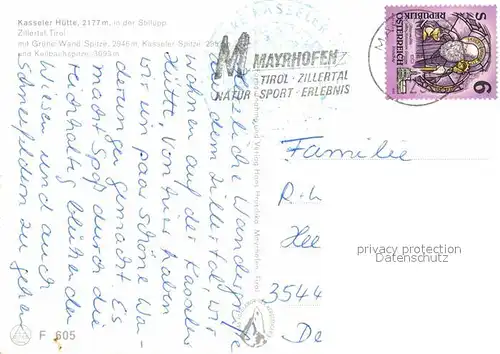 Kasseler Hütte, 2177 m, in der Stillupp
Zillertal, Tirol
mit Grüne Wand Spitze, 2946 m, Kasseler Spitze
und Keilbachspitze, 3093 m
MAYRHOFEN
TIROL · ZILLERTAL
NATUR · SPORT · ERLEBNIS
REPUBLIK
ÖSTERREICH
S 6
liche Wandergrüße
s dem Zillertal, wir
wohnen auf der Kasseler
Hütte, von hier haben
wir ein paar schöne Wa-
derungen gemacht. Es
macht Spaß durch die
reichhaltig blühenden
Wiesen und auch
Schneefeldern zu gehen
Familie
R.u
Hee
3544
De
privacy protection
Datenschutz
F 605